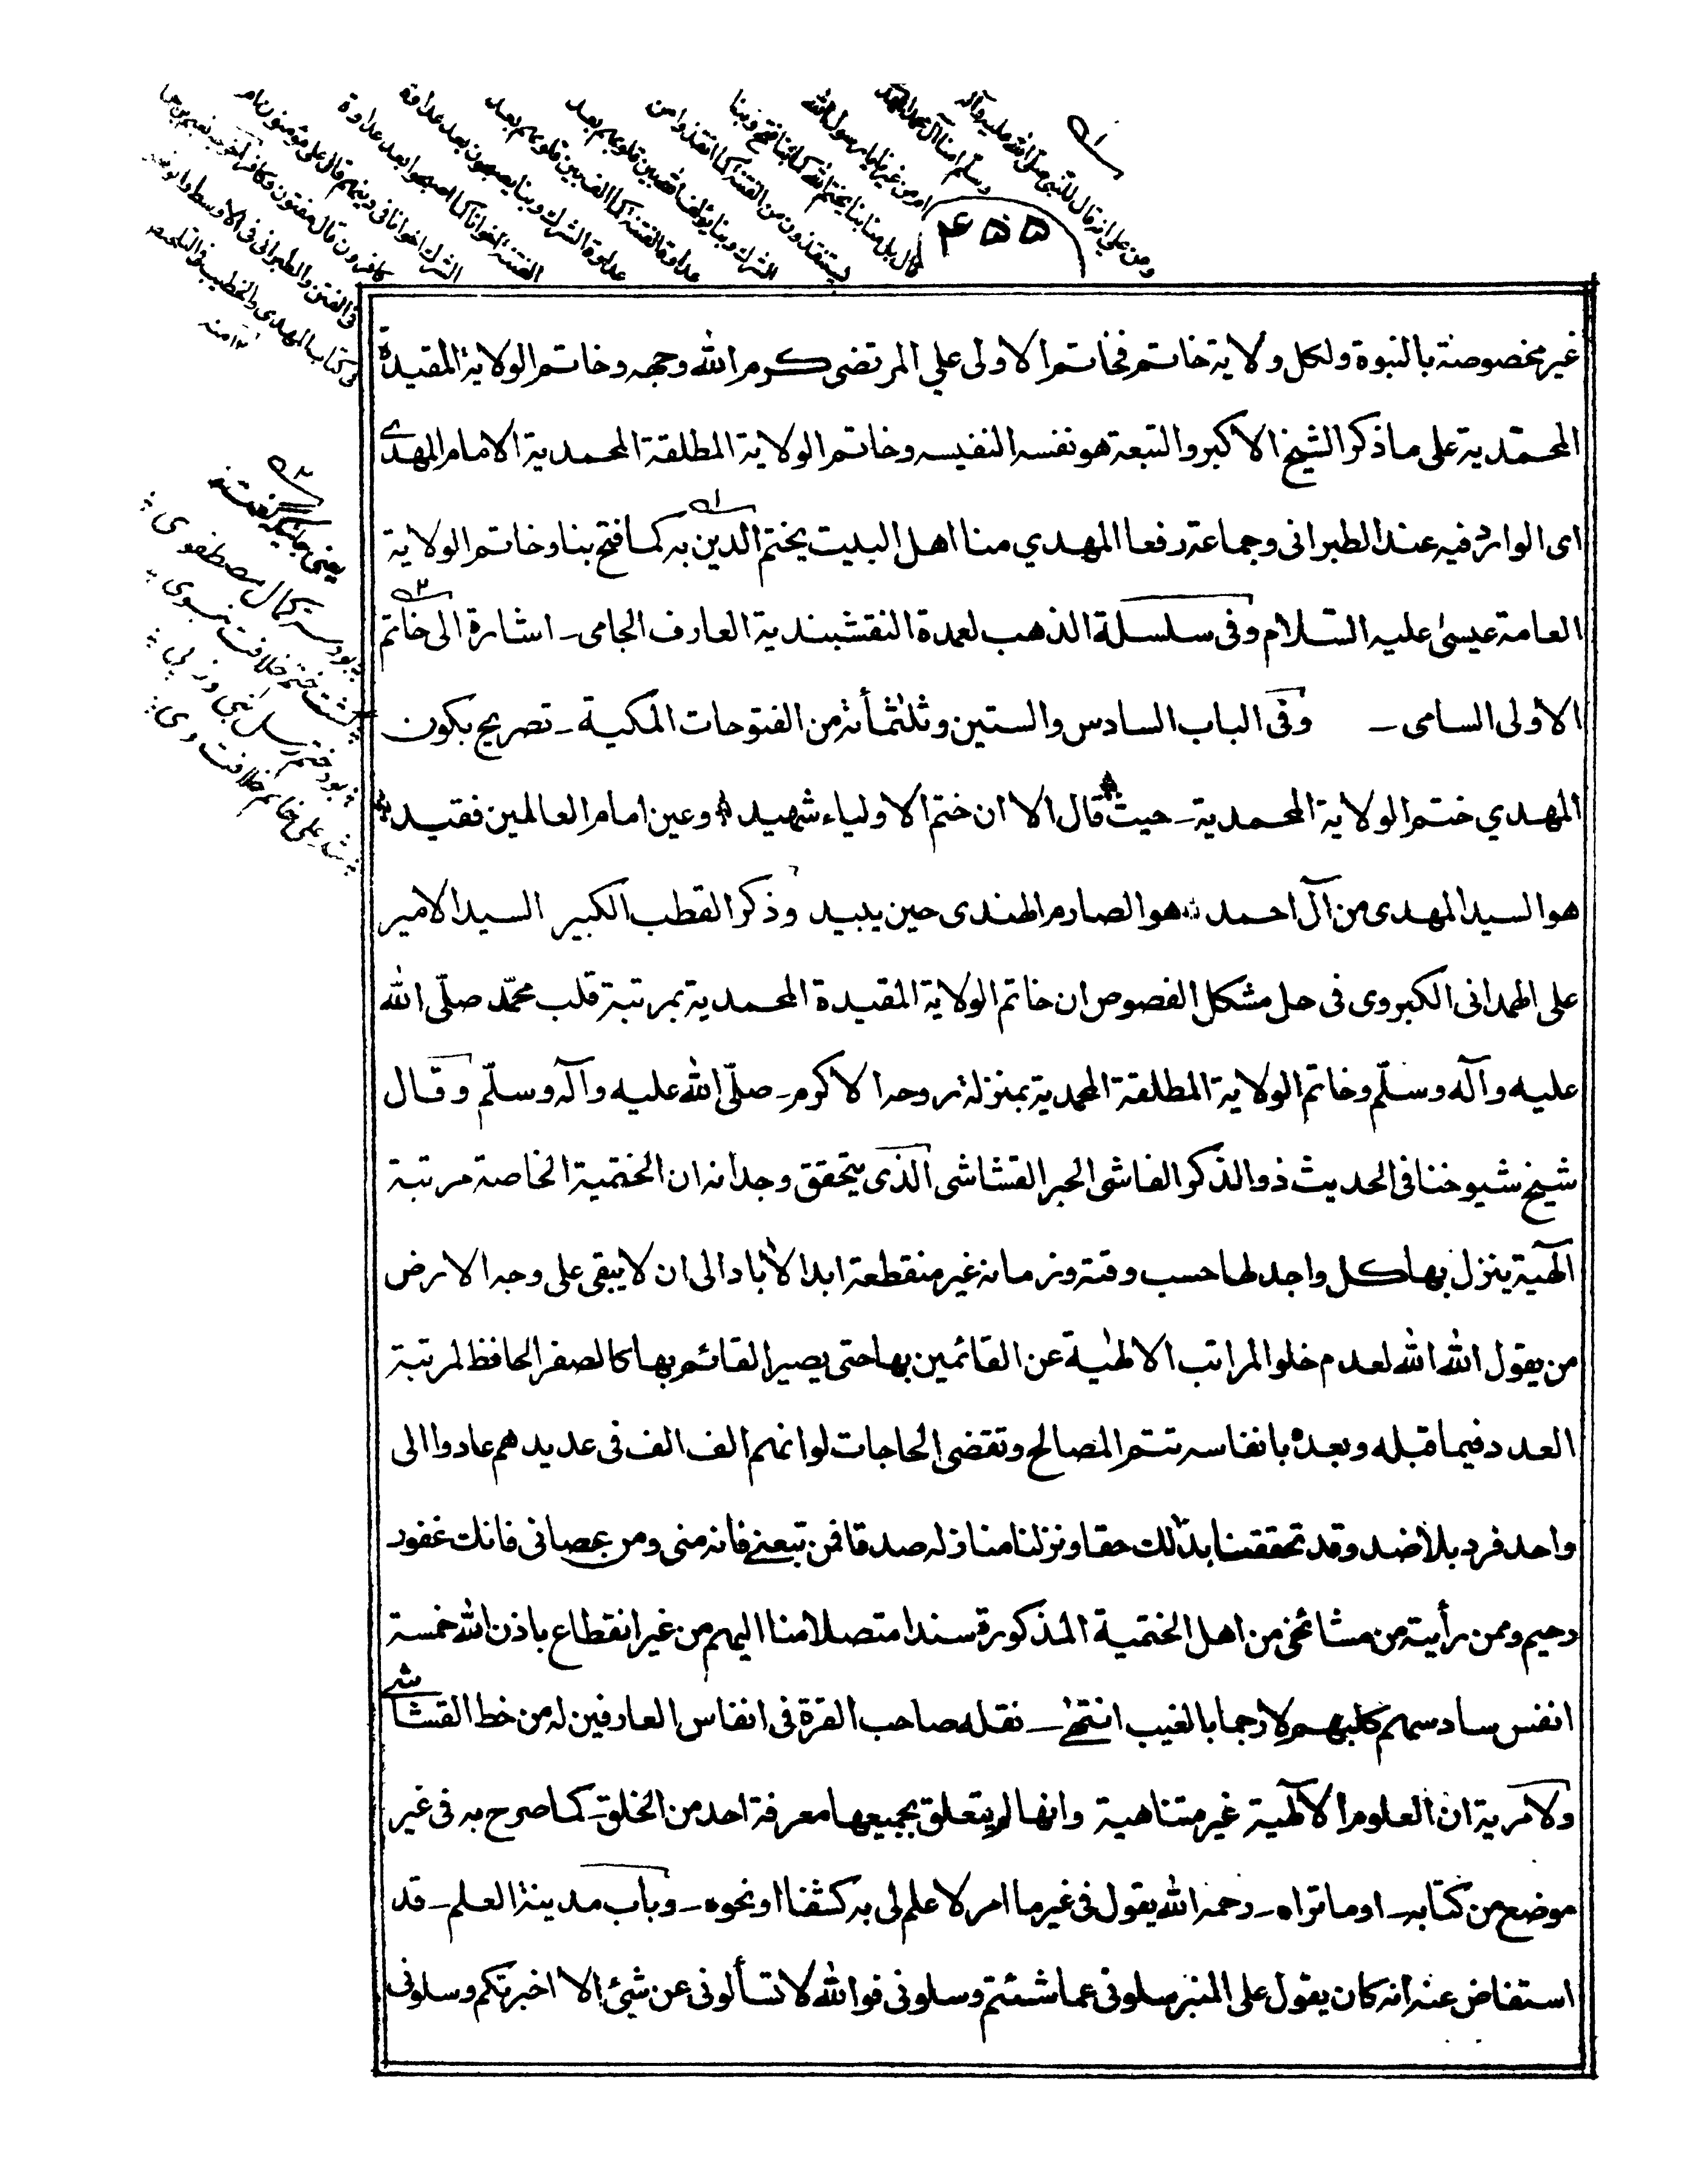 ۴۵۵
ومن علي انه قال للنبي صلى الله عليه وآله
وسلم امنا آل محمد المهدي
ام من غيرنا يا رسول الله
قال بل منا بنا يختم الله كما بنا فتح وبنا
يستنقذون من الفتنة كما انقذوا من
الشرك وبنا يؤلف الله بين قلوبهم بعد
عداوة الفتنة كما الف بين قلوبهم بعد
عداوة الشرك وبنا يصبحون بعد عداوة
الفتنة اخوانا كما اصبحوا بعد عداوة
الشرك اخوانا في دينهم قال علي مؤمنون ام
كافرون قال مفتون وكافر
في الفتن والطبراني في الاوسط وابو نعيم
في كتاب المهدي والخطيب في التلخيص
۱۲ منه
غير مخصوصة بالنبوة ولكل ولاية خاتم فخاتم الاولى علي المرتضى كرم الله وجهه وخاتم الولاية المقيدة
المحمّدية على ما ذكر الشيخ الاكبر والتبعة هو نفسه النفيسه وخاتم الولاية المطلقة المحمدية الامام المهدي
اى الوارد فيه عند الطبرانى وجماعة رفعا المهدي منا اهل البيت يختم الدين به كما فتح بنا وخاتم الولاية
العامة عيسىٰ عليه السّلام وفى سلسلة الذهب لعمدة النقشبندية العارف الجامى ـ اشارة الى خاتم
الاولى السامى ـ وفى الباب السادس والستين وثلثمأئة من الفتوحات المكية ـ تصريح بكون
المهدي ختم الولاية المحمدية ـ حيث قال الا ان ختم الاولياء شهيد ؛ وعين امام العالمين فقيد ؛
هو السيد المهدى من آل احمد ؛ هو الصارم الهندى حين يبيد وذكر القطب الكبير السيد الامير
على الهمدانى الكبروى فى حل مشكل الفصوص ان خاتم الولاية المقيدة المحمدية بمرتبة قلب محمّد صلّى الله
عليه وآله وسلّم وخاتم الولاية المطلقة المحمدية بمنزلة روحه الاكرم ـ صلّى الله عليه وآله وسلّم وقال
شيخ شيوخنا فى الحديث ذو الذكر الفاشى الحبر القشاشى الذى يتحقق وجدانه ان الختمية الخاصة مرتبة
الٓهية ينزل بها كل واجد لها حسب وقته وزمانه غير منقطعة ابد الاٰباد الى ان لا يبقى على وجه الارض
من يقول الله الله لعدم خلو المراتب الالهٰية عن القائمين بها حتى يصير القائم بها كالصفر الحافظ لمرتبة
العدد فيما قبله وبعده بانفاسه تتم المصالح وتقضى الحاجات لو انهم الف الف فى عديد هم عادوا الى
واحد فرد بلا ضد وقد تحققنا بذلك حقا ونزلنا منازله صدقا فمن تبعنى فانه منى ومن عصانى فانك غفور
رحيم وممن رأيته من مشائخى من اهل الختمية المذكورة سندا متصلا منا اليهم من غير انقطاع باذن الله خمسة
انفس سادسهم كلبهم لا رجما بالغيب انتهىٰ ـ نقله صاحب القرة فى انفاس العارفين له من خط القشاشى
ولا مرية ان العلوم الآلهية غير متناهية وانها لم يتعلق بجميعها معرفة احد من الخلق ـ كما صرح به فى غير
موضع من كتابه ـ او ما تراه ـ رحمه الله يقول فى غير ما امر لا علم لى به كشفنا او نحوه ـ وباب مدينة العلم ـ قد
استفاض عنه انه كان يقول على المنبر سلونى عما شئتم وسلونى فوالله لا تسألونى عن شئ الا اخبرتكم وسلونى
۲
يعنى جائيكه گفته
بودست كمال مصطفوى
گشت ختم خلافت نبوى
بود ختم رسل نبى وز پى
شد على خاتم خلافت وى